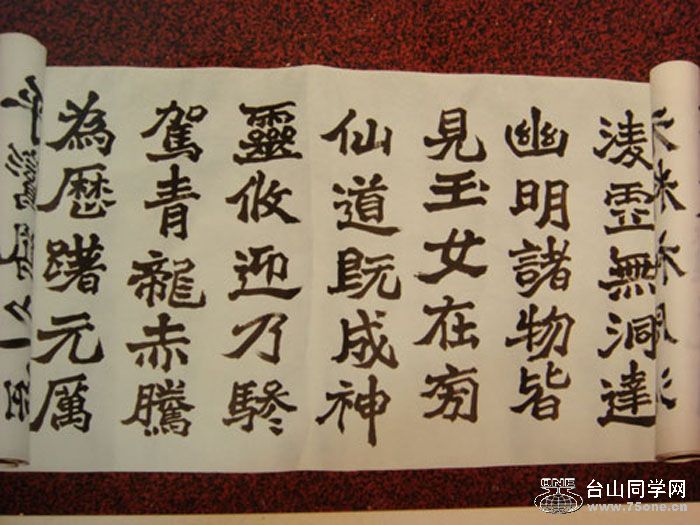 淩虛無洞達
幽明諸物皆
見玉女在旁
仙道既成神
靈攸迎乃驂
駕青龍赤騰
為歷躇元厲
台山同学网
www.75one.cn
ONE